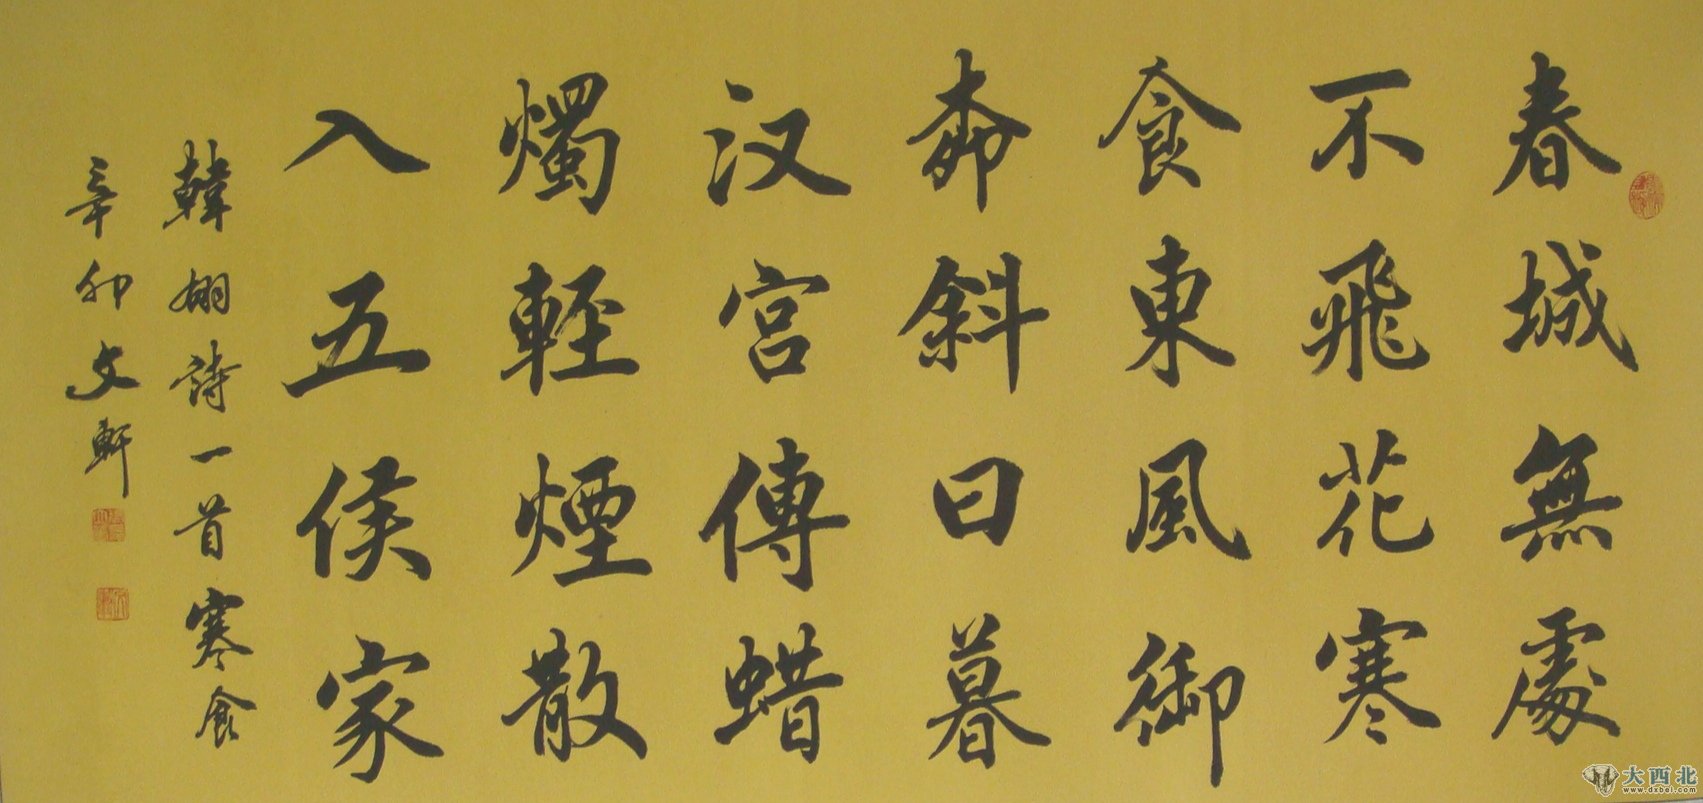 春城無處
不飛花寒
食東風御
桺斜日暮
汉宫傳蜡
燭輕煙散
入五侯家
韓翃詩一首寒食
辛卯文軒
大西北
www.dxbei.com